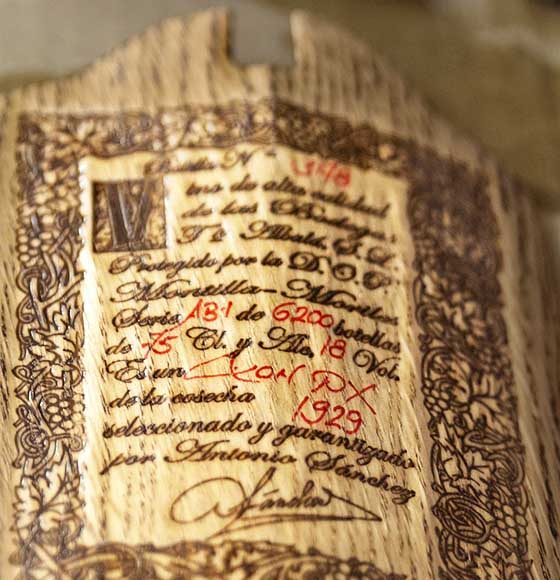 Botella Nº
Vino de alta calidad
de las Bodegas
Tº Albalá, S. L.
Protegido por la D. O. P.
Montilla-Moriles
Serie AB1 de 6200 botellas
de 75 Cl. y Alc. 18 Vol.
Es un Don PX
de la cosecha 1929
seleccionado y garantizado
por Antonio Sánchez